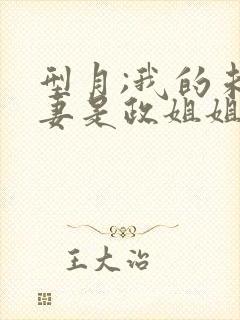 型月;我的未
妻是政姐姐
王大治